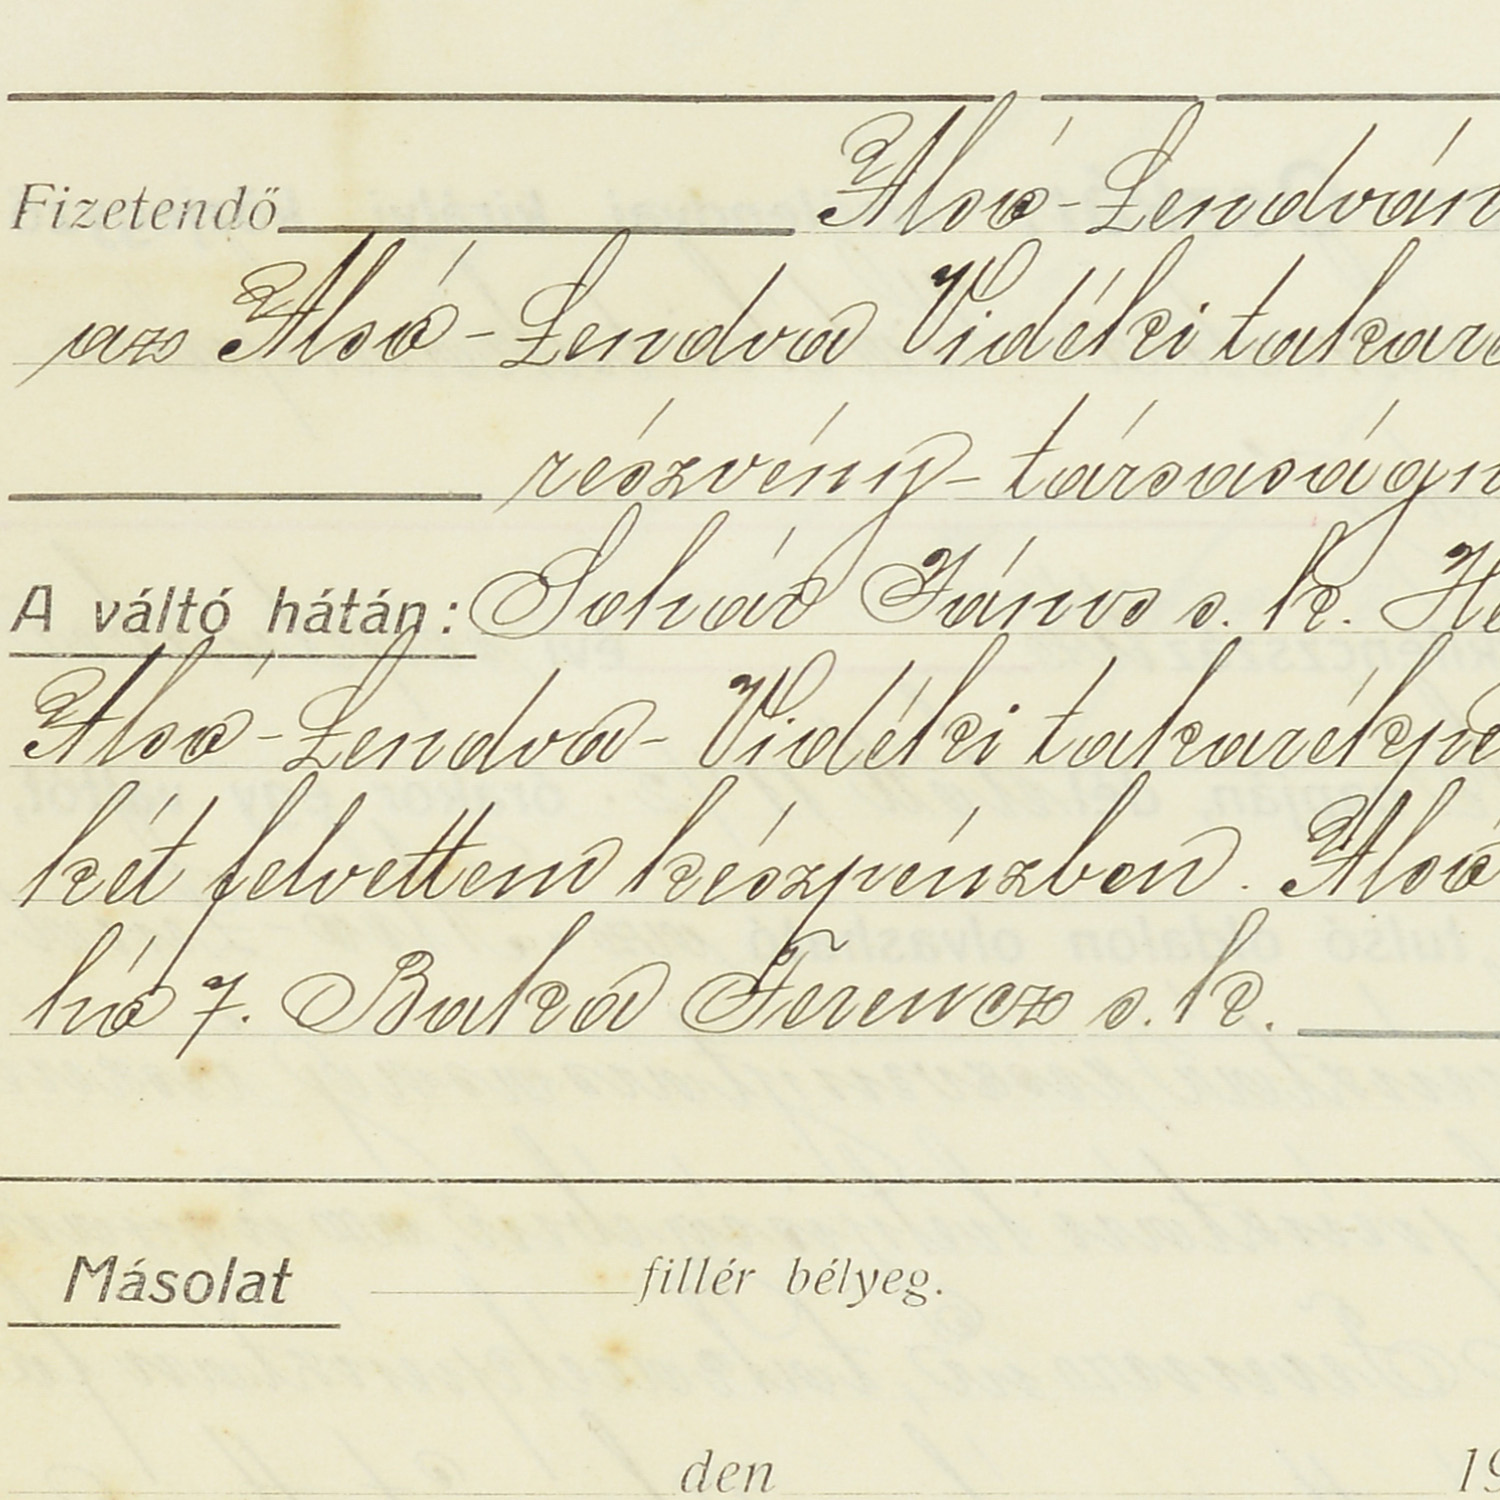 Fizetendő Alsó-Lendván
az Alsó-Lendva Vidéki takaré
részvény-társaságn
A váltó hátán: Sohár János s. k. He
Alsó-Lendva-Vidéki takarékpé
két felvettem készpénzben. Alsó
hó 7. Baka Ferencz s. k.
Másolat fillér bélyeg.
den 19